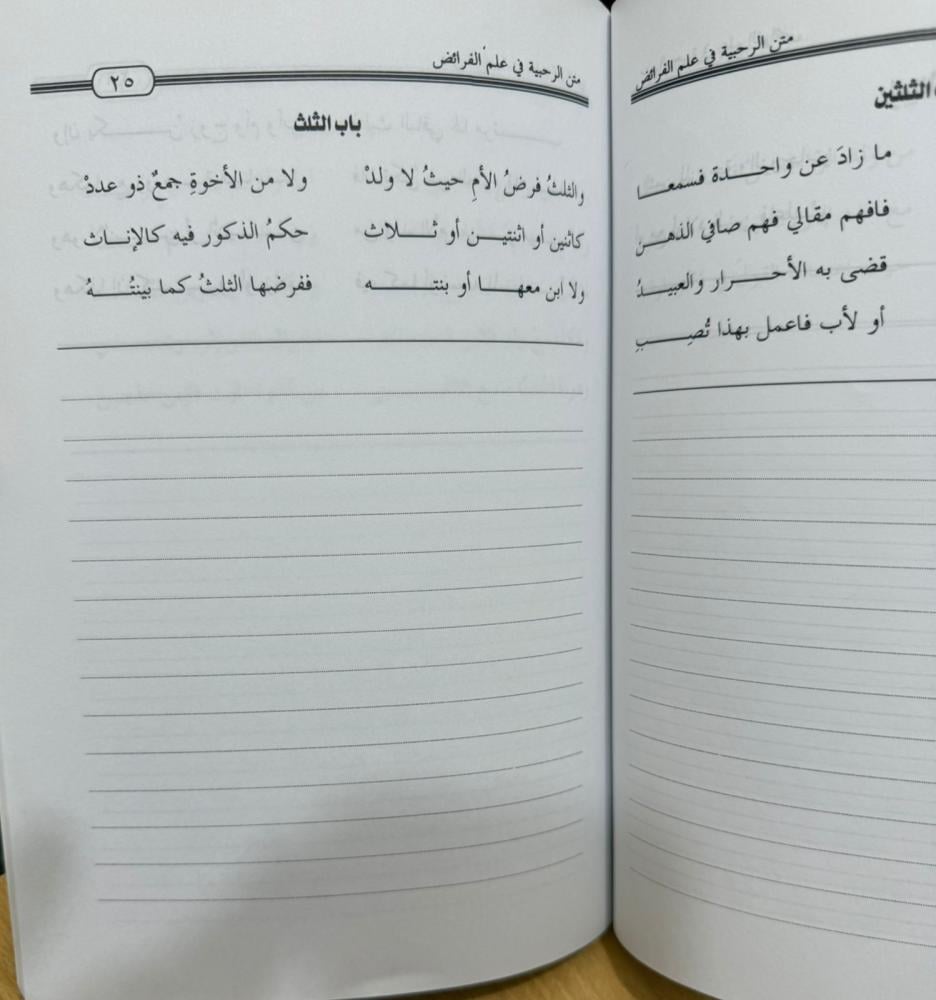 متن الرحبية في علم الفرائض
الثلثين
ما زادَ عن واحـــدة فسمعـــا
فافهم مقالي فهم صافي الذهـــن
قضى به الأحـــرار والعبيـــدُ
أو لأب فاعمل بهذا تُصِـــبِ
متن الرحبية في علم الفرائض
٢٥
باب الثلث
والثلثُ فرضُ الأمِ حيثُ لا ولدْ ولا من الأخوةِ جمعٌ ذو عددْ
كاثنين أو اثنتيـــن أو ثـــلاث حكمُ الذكور فيه كالإنـــاث
ولا ابن معهـــا أو بنتـــه ففرضها الثلثُ كما بينتُـــهُ